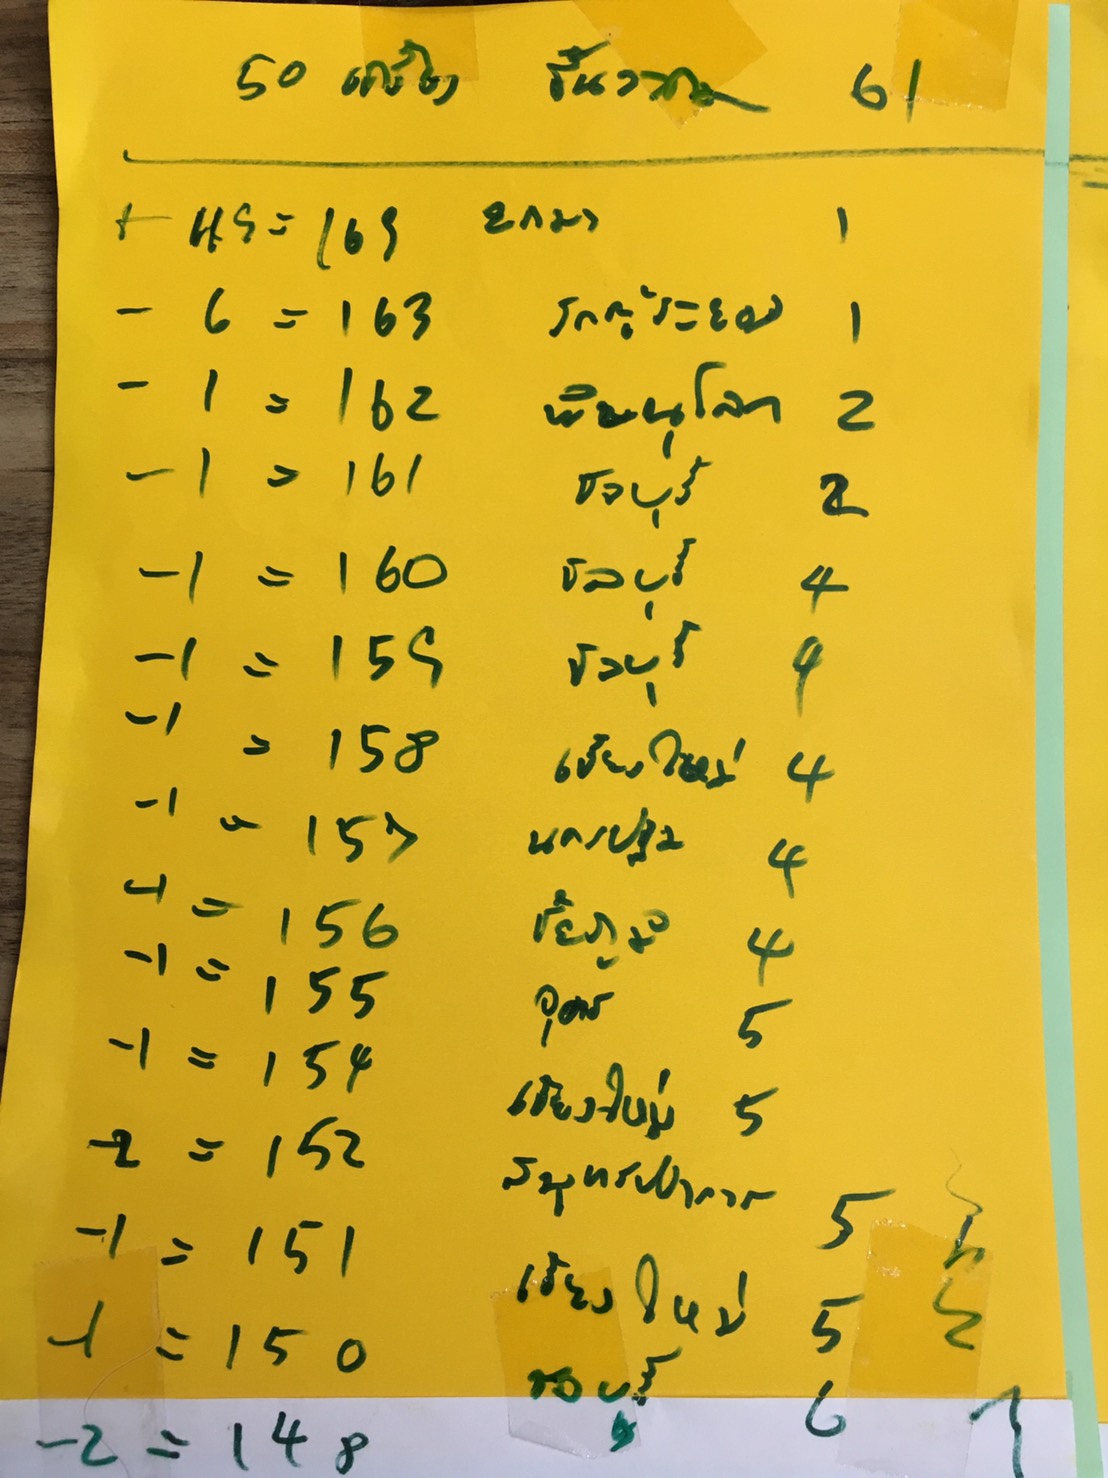 50 ธันวาคม 61
+ 49 = 169 ยกมา 1
- 6 = 163 ระยอง 1
- 1 = 162 พิษณุโลก 2
- 1 = 161 ชลบุรี 2
- 1 = 160 ชลบุรี 4
- 1 = 159 ชลบุรี 4
- 1 = 158 เชียงใหม่ 4
- 1 = 157 นครปฐม 4
- 1 = 156 ชัยภูมิ 4
- 1 = 155 อุดร 5
- 1 = 154 เชียงใหม่ 5
- 2 = 152 สมุทรปราการ 5
- 1 = 151 เชียงใหม่ 5
- 1 = 150 ชลบุรี 6
- 2 = 148